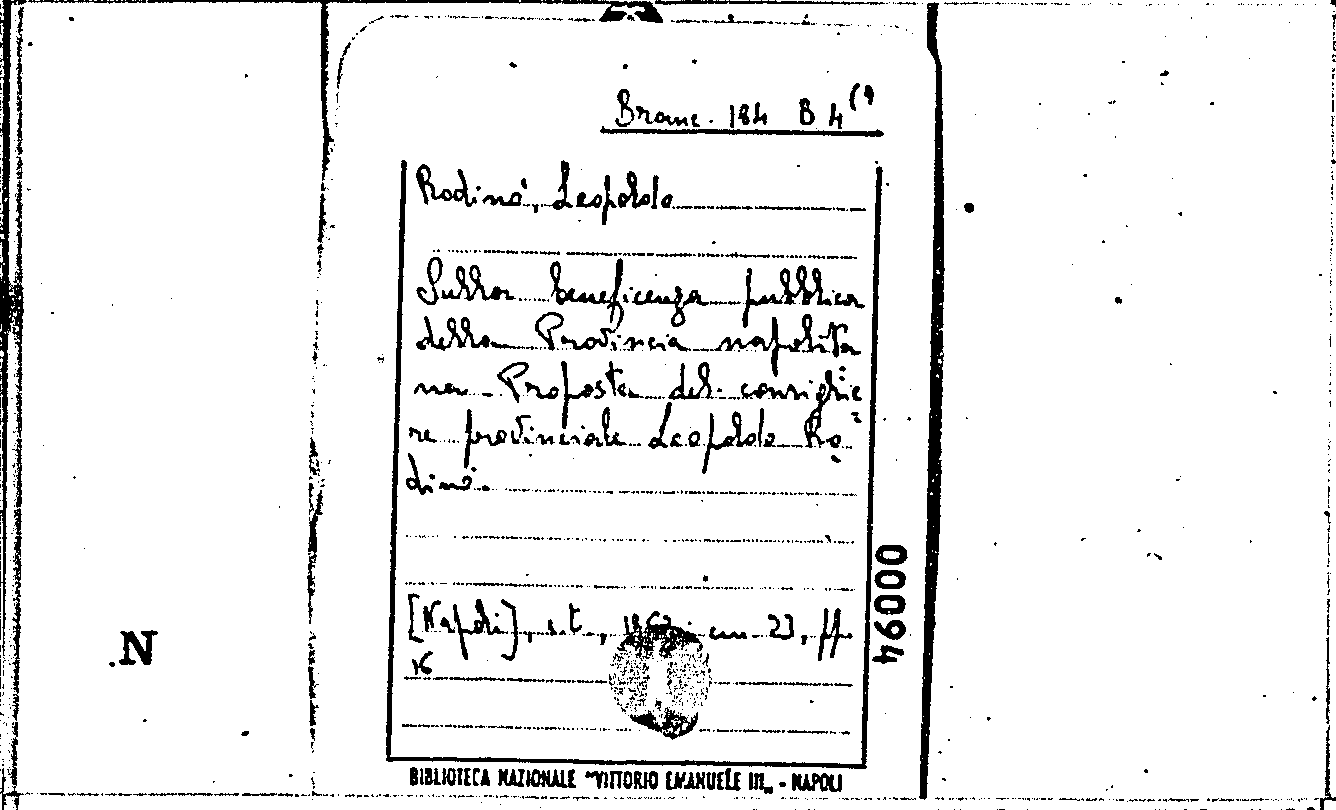 Branc. 184 B 4(9
Rodinò, Leopoldo
Sulla beneficenza pubblica
della Provincia napolita
na. Proposta del consiglie=
re provinciale Leopoldo Ro=
dinò.
[Napoli], s.t., cm 23, pp.
16
00094
N.
BIBLIOTECA NAZIONALE "VITTORIO EMANUELE III„ - NAPOLI